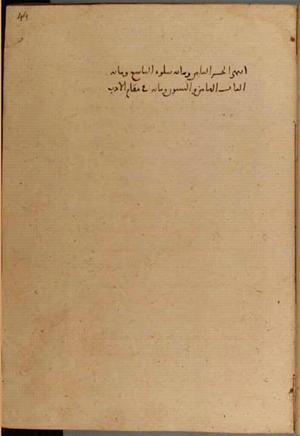 انتهى الجزء الثامن ومائه يتلوه التاسع ومائه
الباب الثامن والستون ومائه في مقام الادب